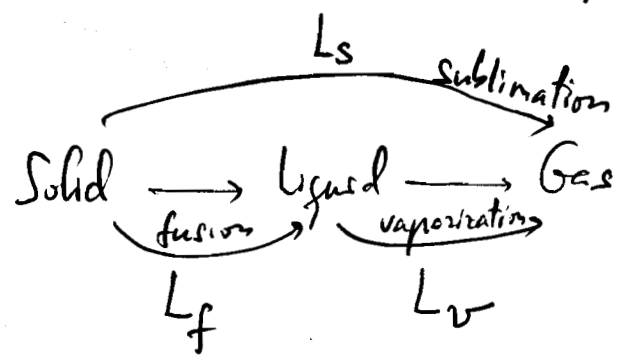 Ls
sublimation
Solid → Liquid → Gas
fusion vaporization
Lf Lv